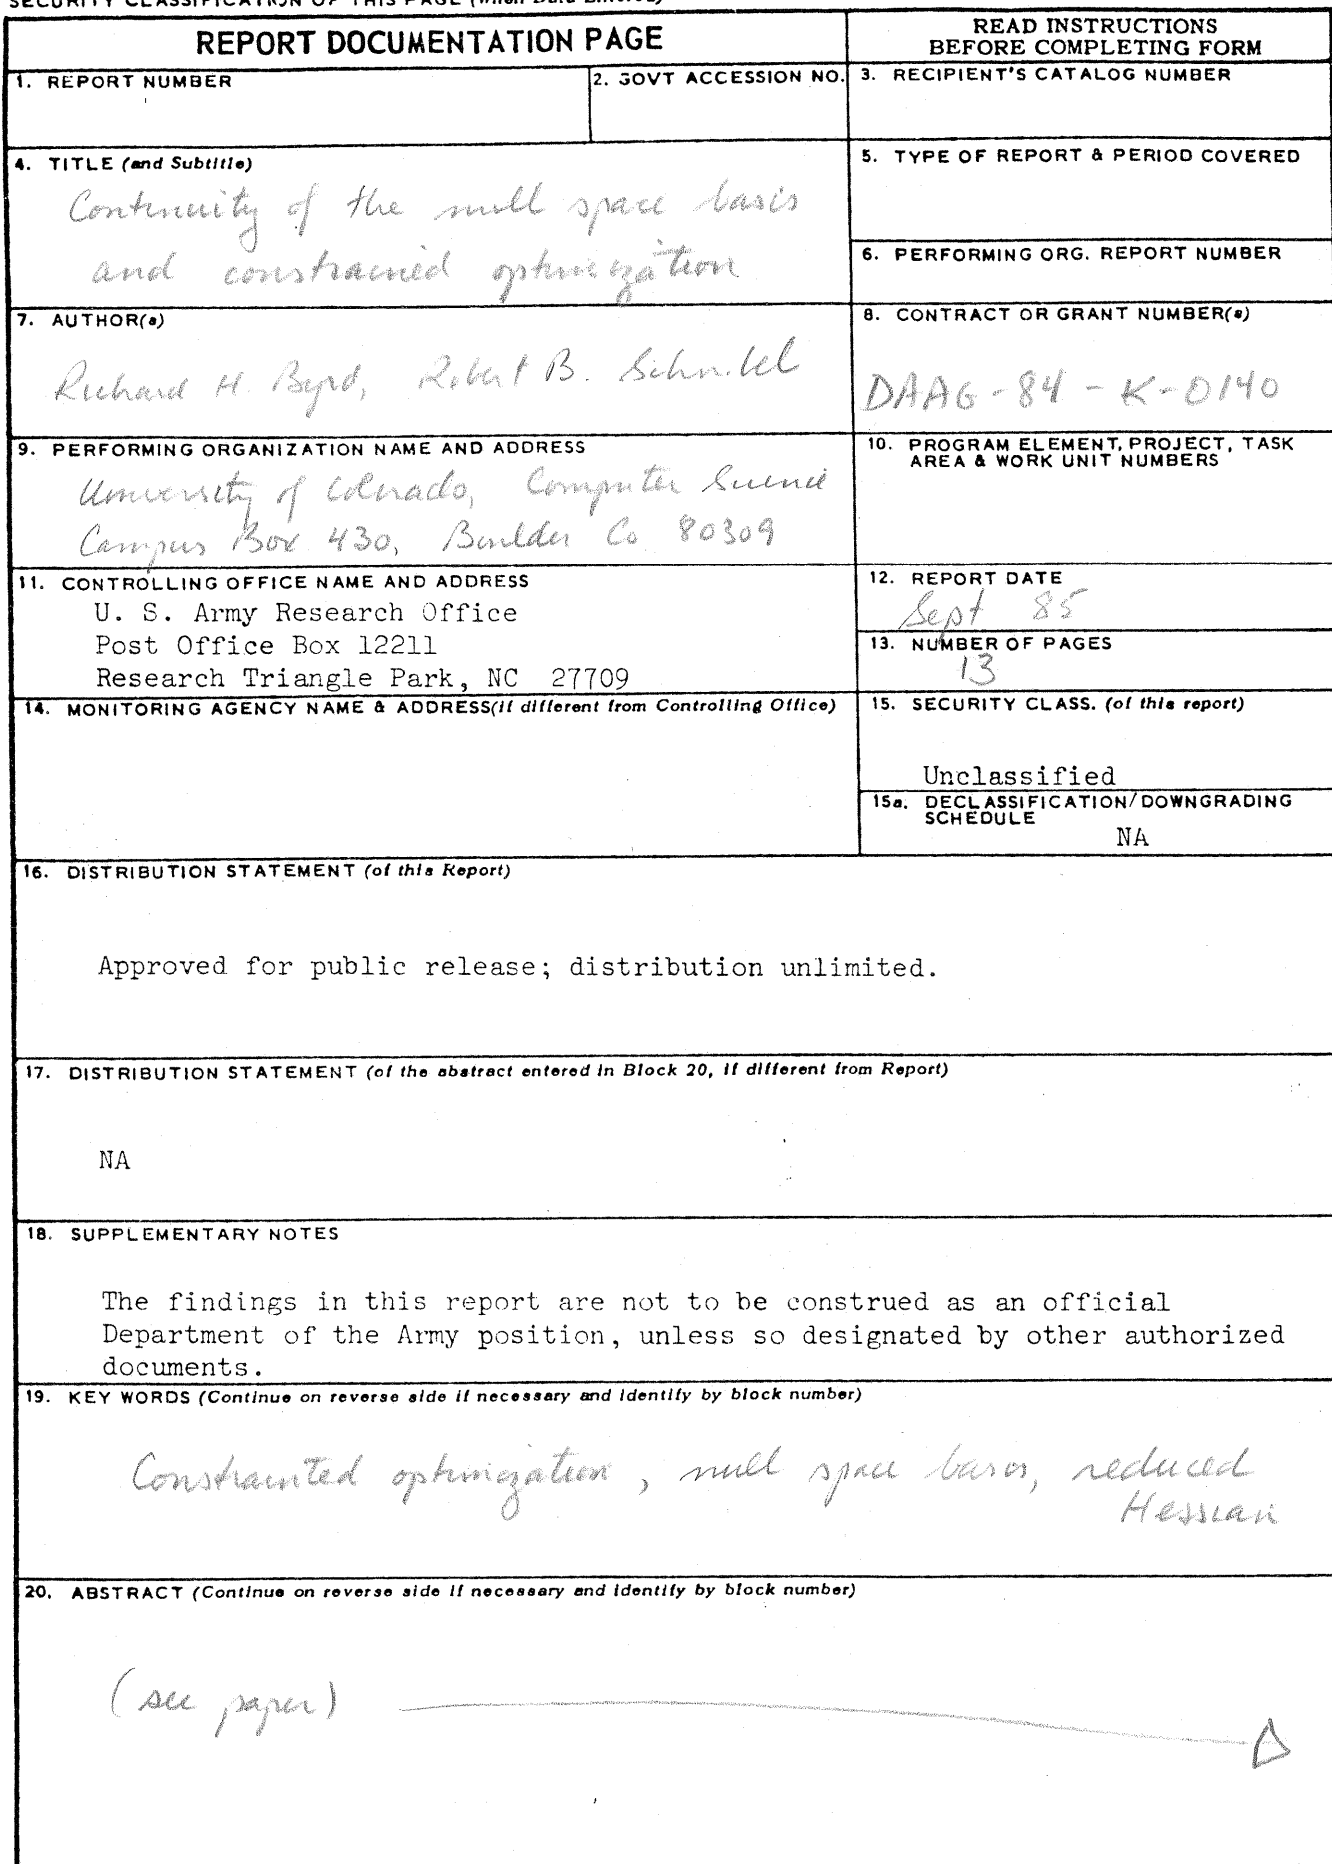 SECURITY CLASSIFICATION OF THIS PAGE (When Data Entered)
REPORT DOCUMENTATION PAGE
READ INSTRUCTIONS
BEFORE COMPLETING FORM
1. REPORT NUMBER
2. GOVT ACCESSION NO.
3. RECIPIENT'S CATALOG NUMBER
4. TITLE (and Subtitle)
Continuity of the null space basis
and constrained optimization
5. TYPE OF REPORT & PERIOD COVERED
6. PERFORMING ORG. REPORT NUMBER
7. AUTHOR(s)
Richard H. Byrd, Robert B. Schnabel
8. CONTRACT OR GRANT NUMBER(s)
DAAG-84-K-0140
9. PERFORMING ORGANIZATION NAME AND ADDRESS
University of Colorado, Computer Science
Campus Box 430, Boulder Co 80309
10. PROGRAM ELEMENT, PROJECT, TASK
AREA & WORK UNIT NUMBERS
11. CONTROLLING OFFICE NAME AND ADDRESS
U. S. Army Research Office
Post Office Box 12211
Research Triangle Park, NC 27709
12. REPORT DATE
Sept 85
13. NUMBER OF PAGES
13
14. MONITORING AGENCY NAME & ADDRESS(if different from Controlling Office)
15. SECURITY CLASS. (of this report)
Unclassified
15a. DECLASSIFICATION/DOWNGRADING
SCHEDULE
NA
16. DISTRIBUTION STATEMENT (of this Report)
Approved for public release; distribution unlimited.
17. DISTRIBUTION STATEMENT (of the abstract entered in Block 20, if different from Report)
NA
18. SUPPLEMENTARY NOTES
The findings in this report are not to be construed as an official
Department of the Army position, unless so designated by other authorized
documents.
19. KEY WORDS (Continue on reverse side if necessary and identify by block number)
Constrainted optimization, null space basis, reduced
Hessian
20. ABSTRACT (Continue on reverse side if necessary and identify by block number)
(see paper)